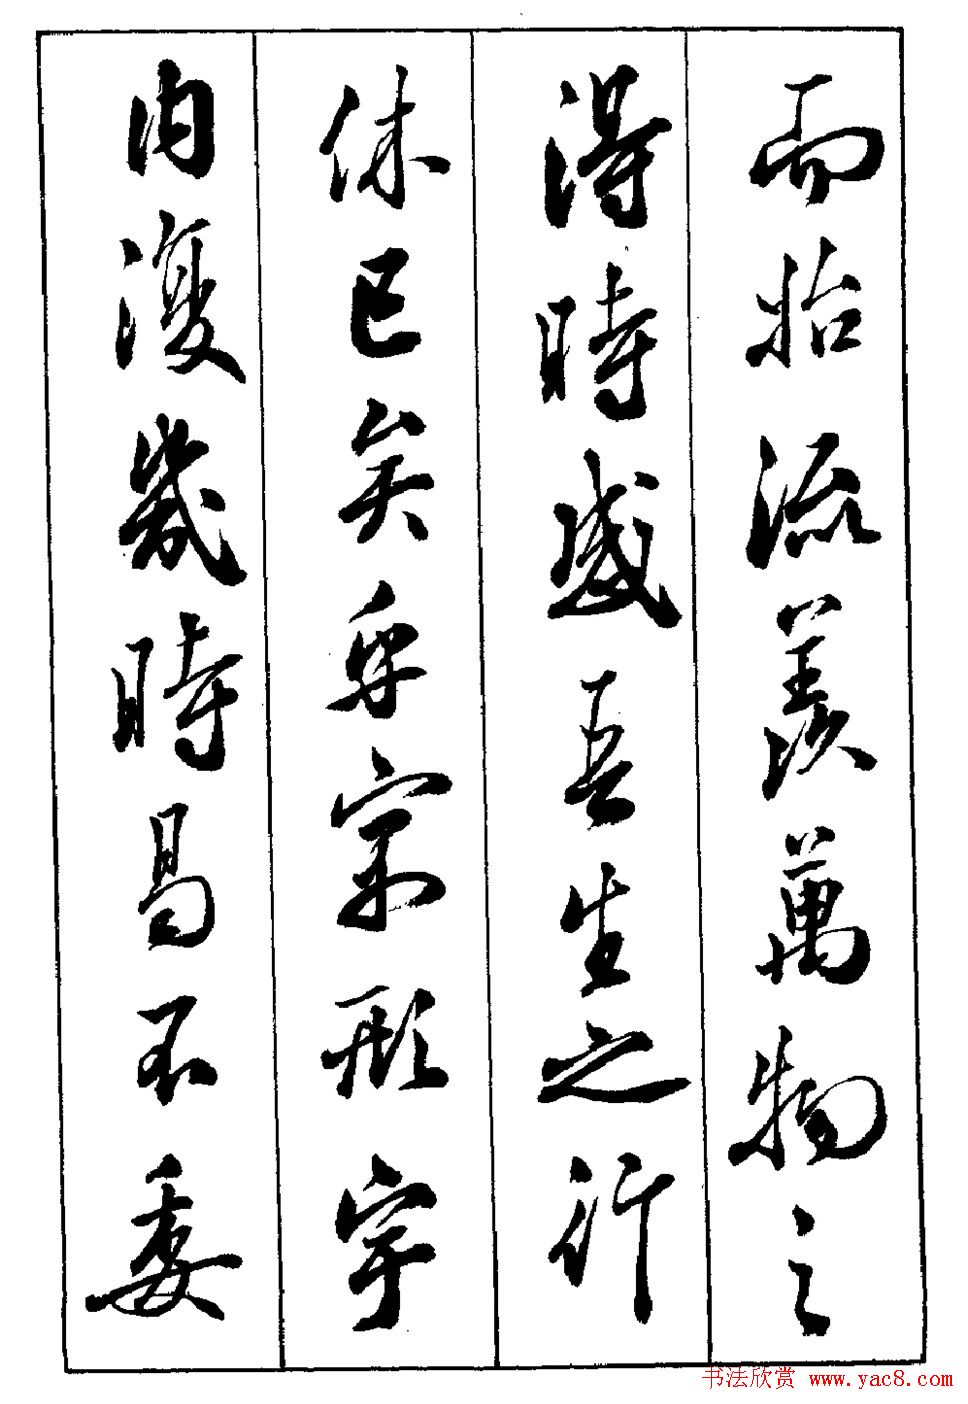 而始流羨萬物之
得時感吾生之行
休已矣乎寓形宇
内復幾時曷不委
书法欣赏 www.yac8.com